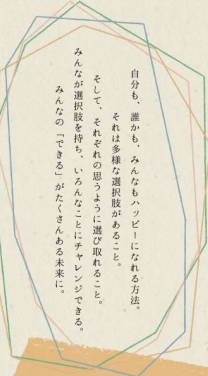 自分も、誰かも、みんなもハッピーになれる方法。
それは多様な選択肢があること。
そして、それぞれの思うように選び取れること。
みんなが選択肢を持ち、いろんなことにチャレンジできる。
みんなの「できる」がたくさんある未来に。